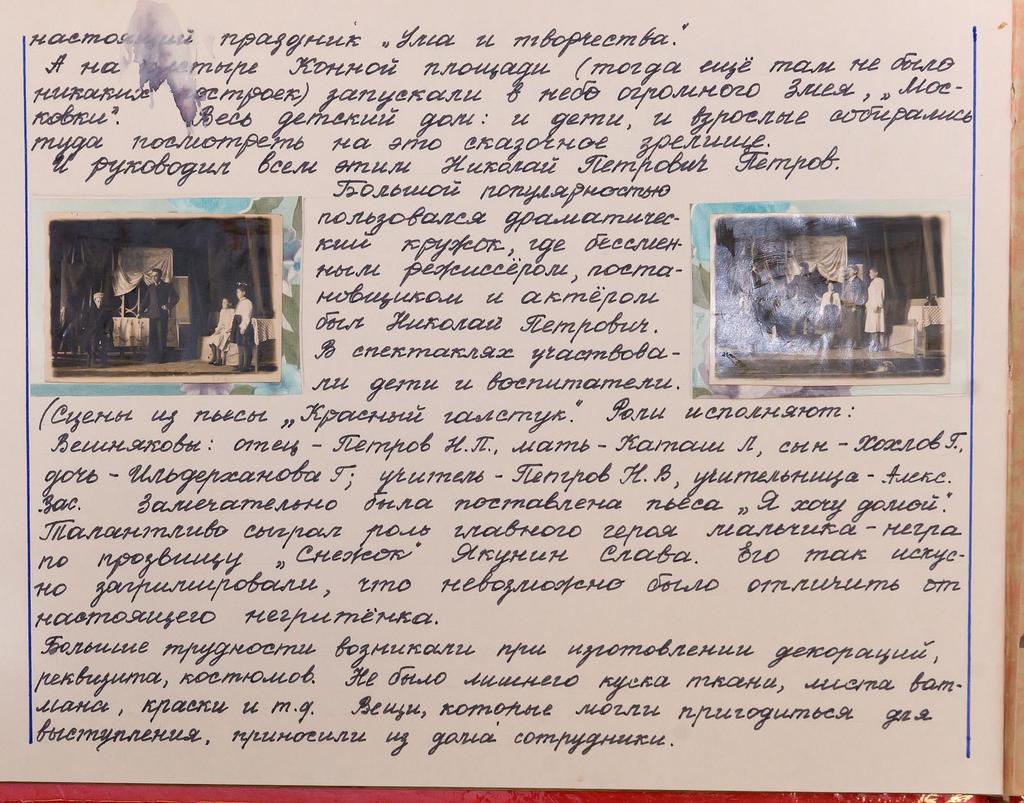 настоящий праздник „Ума и творчества".
А на пустыре Конной площади (тогда ещё там не было
никаких построек) запускали в небо огромного Змея, „Мос-
ковки". Весь детский дом: и дети, и взрослые собирались
туда посмотреть на это сказочное зрелище.
И руководил всем этим Николай Петрович Петров.
Большой популярностью
пользовался драматичес-
кий кружок, где бессмен-
ным режиссёром, поста-
новщиком и актёром
был Николай Петрович.
В спектаклях участвова-
ли дети и воспитатели.
(Сцены из пьесы „Красный галстук". Роли исполняют:
Вешняковы: отец - Петров Н.П., мать - Каташ Л, сын - Хохлов Г.,
дочь - Ильдерханова Г; учитель - Петров Н.В, учительница - Алекс.
Вас. Замечательно была поставлена пьеса „Я хочу домой".
Талантливо сыграл роль главного героя мальчика-негра
по прозвищу „Снежок" Якунин Слава. Его так искус-
но загримировали, что невозможно было отличить от
настоящего негритёнка.
Большие трудности возникали при изготовлении декораций,
реквизита, костюмов. Не было лишнего куска ткани, листа ват-
мана, краски и т.д. Вещи, которые могли пригодиться для
выступления, приносили из дома сотрудники.